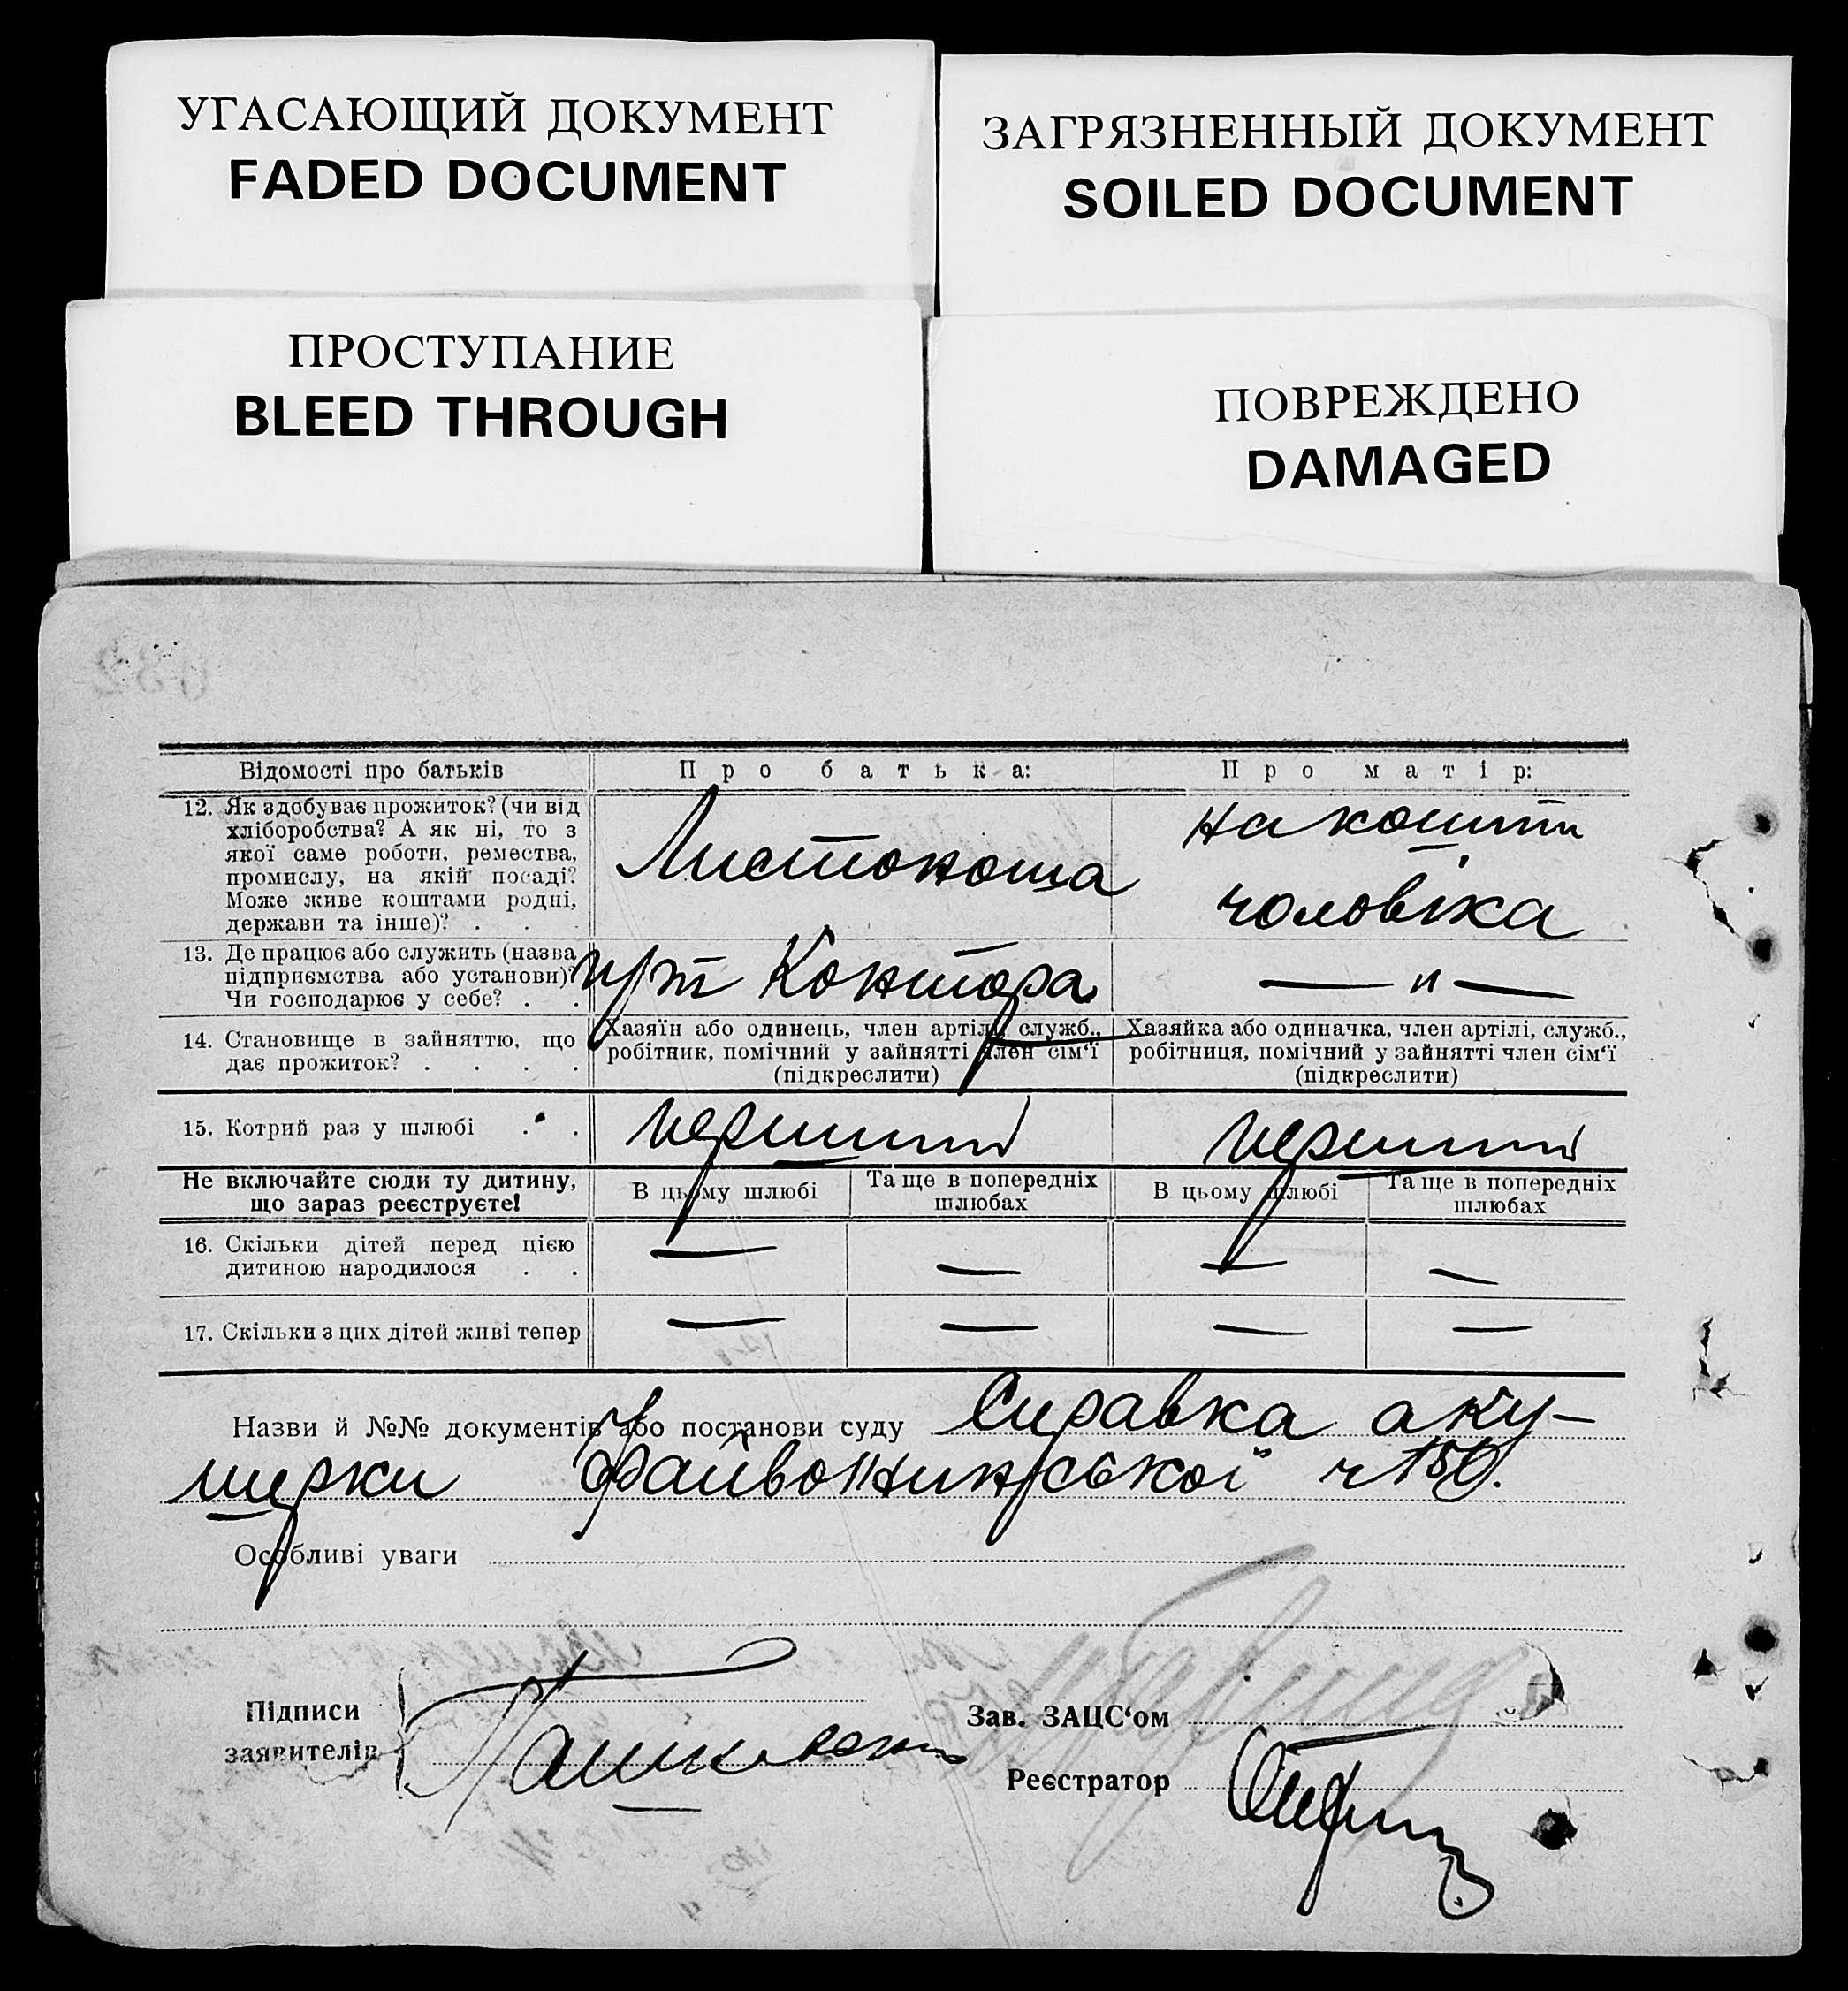 УГАСАЮЩИЙ ДОКУМЕНТ
FADED DOCUMENT
ЗАГРЯЗНЕННЫЙ ДОКУМЕНТ
SOILED DOCUMENT
ПРОСТУПАНИЕ
BLEED THROUGH
ПОВРЕЖДЕНО
DAMAGED
Відомості про батьків
Про батька:
Про матір:
12. Як здобуває прожиток? (чи від
хліборобства? А як ні, то з
якої саме роботи, ремества,
промислу, на якій посаді?
Може живе коштами родні,
держави та інше)? . . .
Листоноша
на кошти
чоловіка
13. Де працює або служить (назва
підприємства або установи)?
Чи господарює у себе? . .
Контора
— " —
14. Становище в зайняттю, що
дає прожиток? . . . .
Хазяїн або одинець, член артілі, служб.,
робітник, помічний у зайнятті член сім'ї
(підкреслити)
Хазяйка або одиначка, член артілі, служб.,
робітниця, помічний у зайнятті член сім'ї
(підкреслити)
15. Котрий раз у шлюбі . .
перший
перший
Не включайте сюди ту дитину,
що зараз реєструєте!
В цьому шлюбі
Та ще в попередніх
шлюбах
В цьому шлюбі
Та ще в попередніх
шлюбах
16. Скільки дітей перед цією
дитиною народилося . .
— — — —
17. Скільки з цих дітей живі тепер
— — — —
Назви й №№ документів або постанови суду Справка аку-
шерки
Особливі уваги
Підписи
заявителів
Зав. ЗАЦС'ом
Реєстратор